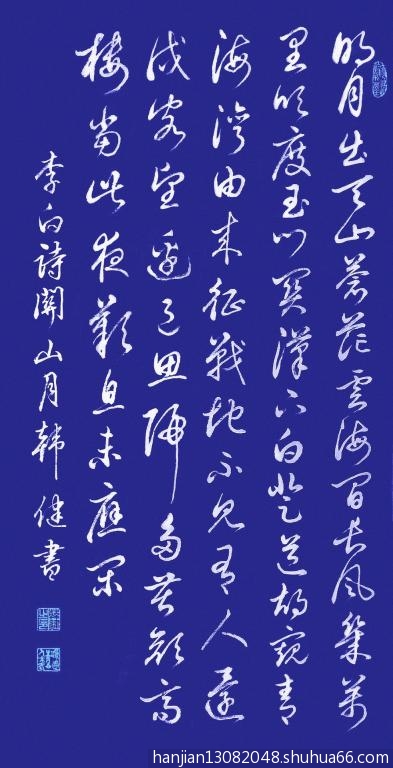 明月出天山蒼茫雲海間長風幾萬
里吹度玉門關漢下白登道胡窺青
海灣由來征戰地不見有人還
戍客望邊色思歸多苦顏高
樓當此夜歎息未應閑
李白詩關山月韓健書
hanjian13082048.shuhua66.com